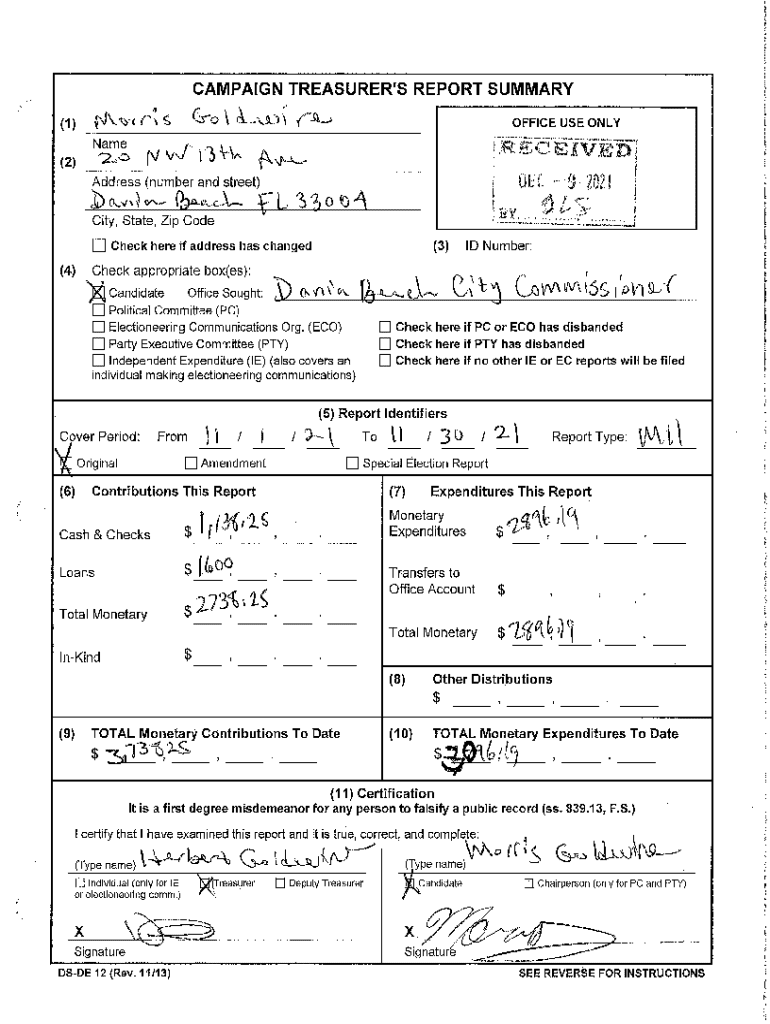 CAMPAIGN TREASURER'S REPORT SUMMARY
(1) Morris Goldwire
Name
OFFICE USE ONLY
RECEIVED
DEC - 9 2021
BY
(2) 20 NW 13th Ave
Address (number and street)
Dania Beach FL 33004
City, State, Zip Code
Check here if address has changed
(3) ID Number:
(4) Check appropriate box(es):
X Candidate Office Sought: Dania Beach City Commissioner
Political Committee (PC)
Electioneering Communications Org. (ECO) Check here if PC or ECO has disbanded
Party Executive Committee (PTY) Check here if PTY has disbanded
Independent Expenditure (IE) (also covers an Check here if no other IE or EC reports will be filed
individual making electioneering communications)
(5) Report Identifiers
Cover Period: From 11 / 1 / 21 To 11 / 30 / 21 Report Type: M11
X Original Amendment Special Election Report
(6) Contributions This Report
Cash & Checks $ 1,138.25
Loans $ 1600
Total Monetary $ 2738.25
In-Kind $
(7) Expenditures This Report
Monetary
Expenditures $ 2896.19
Transfers to
Office Account $
Total Monetary $ 2896.19
(8) Other Distributions
$
(9) TOTAL Monetary Contributions To Date
$ 3,738.25
(10) TOTAL Monetary Expenditures To Date
$
(11) Certification
It is a first degree misdemeanor for any person to falsify a public record (ss. 839.13, F.S.)
I certify that I have examined this report and it is true, correct, and complete:
(Type name) Herbert
Individual (only for IE X Treasurer Deputy Treasurer
or electioneering comm.)
X
Signature
(Type name) Morris Goldwire
X Candidate Chairperson (only for PC and PTY)
X
Signature
DS-DE 12 (Rev. 11/13) SEE REVERSE FOR INSTRUCTIONS